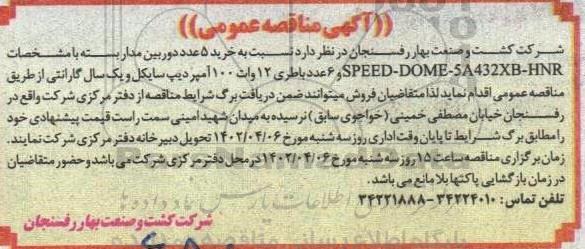 ((آگهی مناقصه عمومی))
شرکت کشت و صنعت بهار رفسنجان در نظر دارد نسبت به خرید ۵ عدد دوربین مدار بسته با مشخصات
SPEED-DOME-5A432XB-HNR و ۶ عدد باطری ۱۲ وات ۱۰۰ آمپر دیپ سایکل و یک سال گارانتی از طریق
مناقصه عمومی اقدام نماید لذا متقاضیان فروش میتوانند ضمن دریافت برگ شرایط مناقصه از دفتر مرکزی شرکت واقع در
رفسنجان خیابان مصطفی خمینی (خواجوی سابق) نرسیده به میدان شهید امینی سمت راست قیمت پیشنهادی خود
را مطابق برگ شرایط تا پایان وقت اداری روز سه شنبه مورخ ۱۴۰۲/۰۴/۰۶ تحویل دبیرخانه دفتر مرکزی شرکت نمایند.
زمان برگزاری مناقصه ساعت ۱۵ روز سه شنبه مورخ ۱۴۰۲/۰۴/۰۶ در محل دفتر مرکزی شرکت می باشد و حضور متقاضیان
در زمان بازگشایی پاکتها بلامانع می باشد.
تلفن تماس: ۳۴۲۲۴۰۱۰-۳۴۲۲۱۸۸۸
شرکت کشت و صنعت بهار رفسنجان